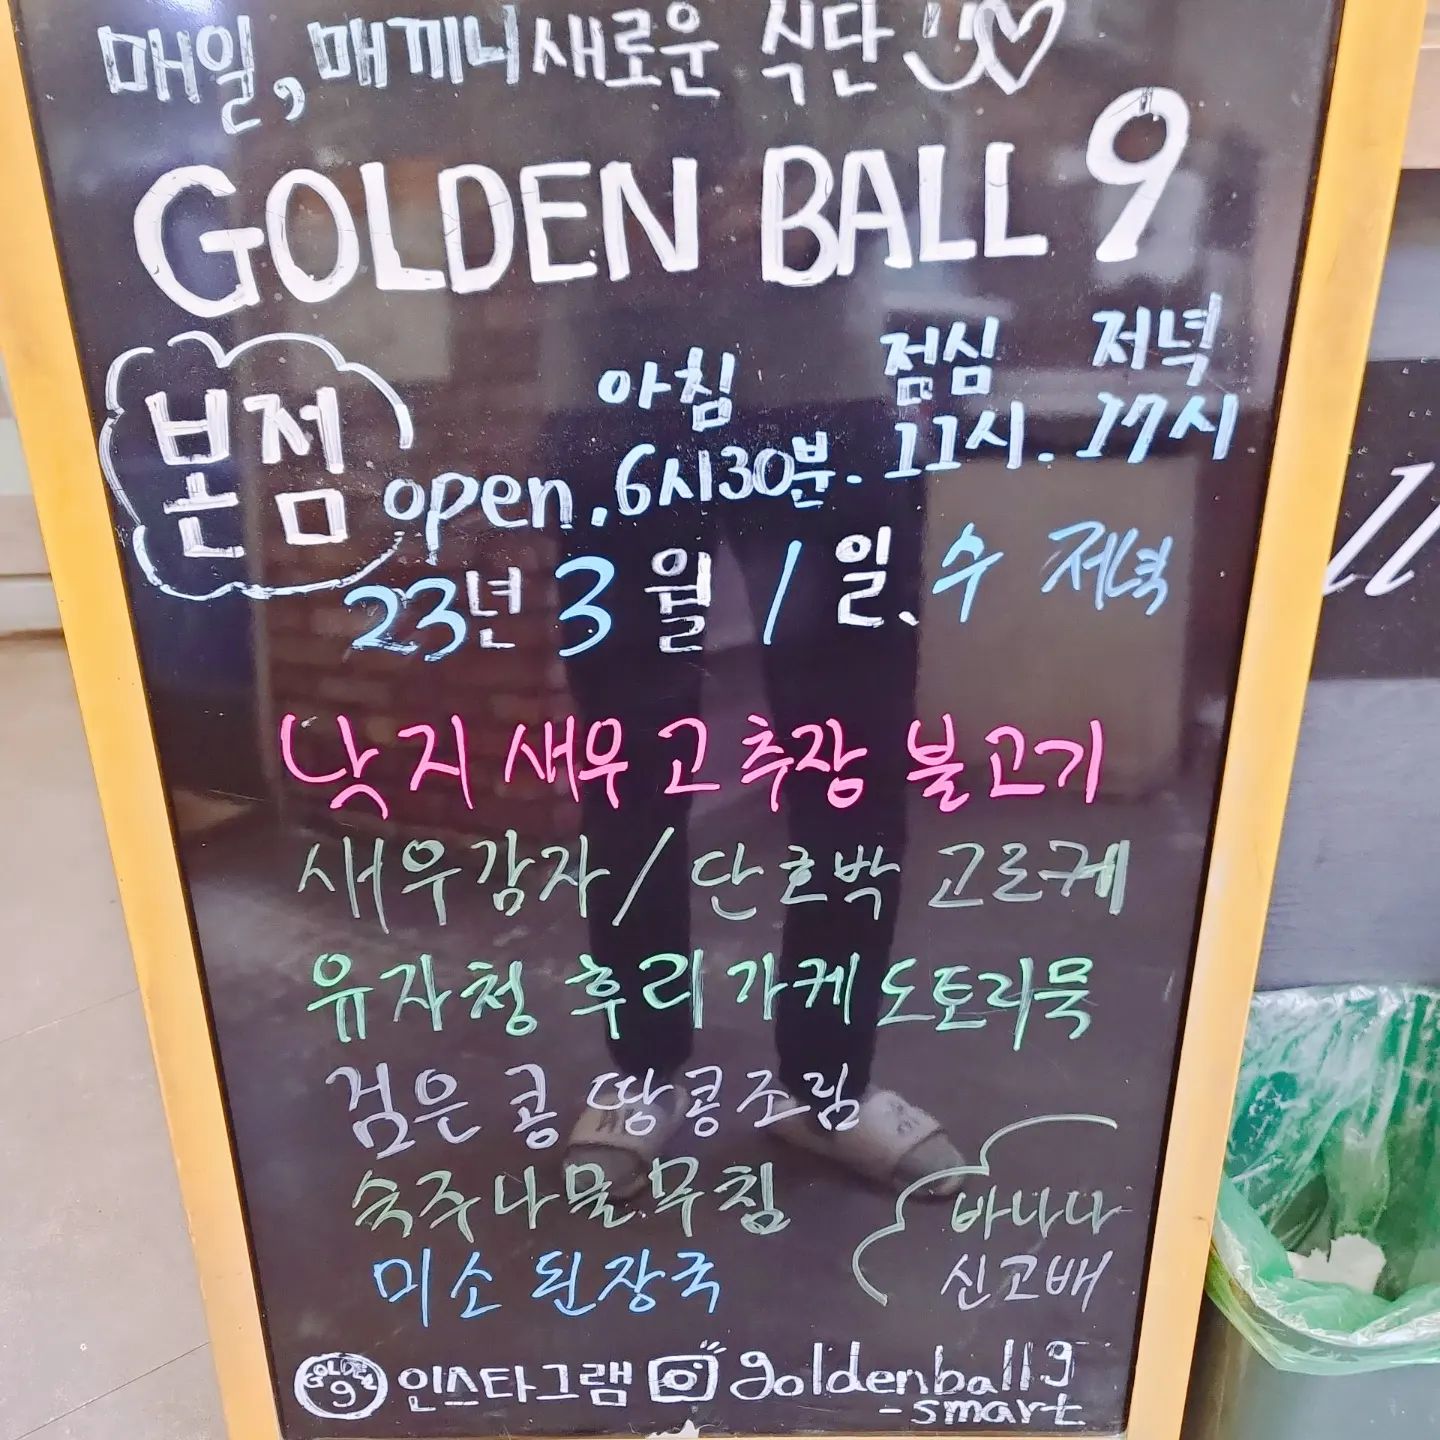 매일, 매끼니 새로운 식단
GOLDEN BALL 9
본점
아침 점심 저녁
open. 6시30분. 11시. 17시
23년 3월 1일. 수 저녁
낙지 새우 고추장 불고기
새우감자/단호박 고로케
유자청 후리가케 도토리묵
검은콩 땅콩조림
숙주나물무침
바나나
미소 된장국
신고배
GOLDEN 9 인스타그램 goldenball9
-smart
ll